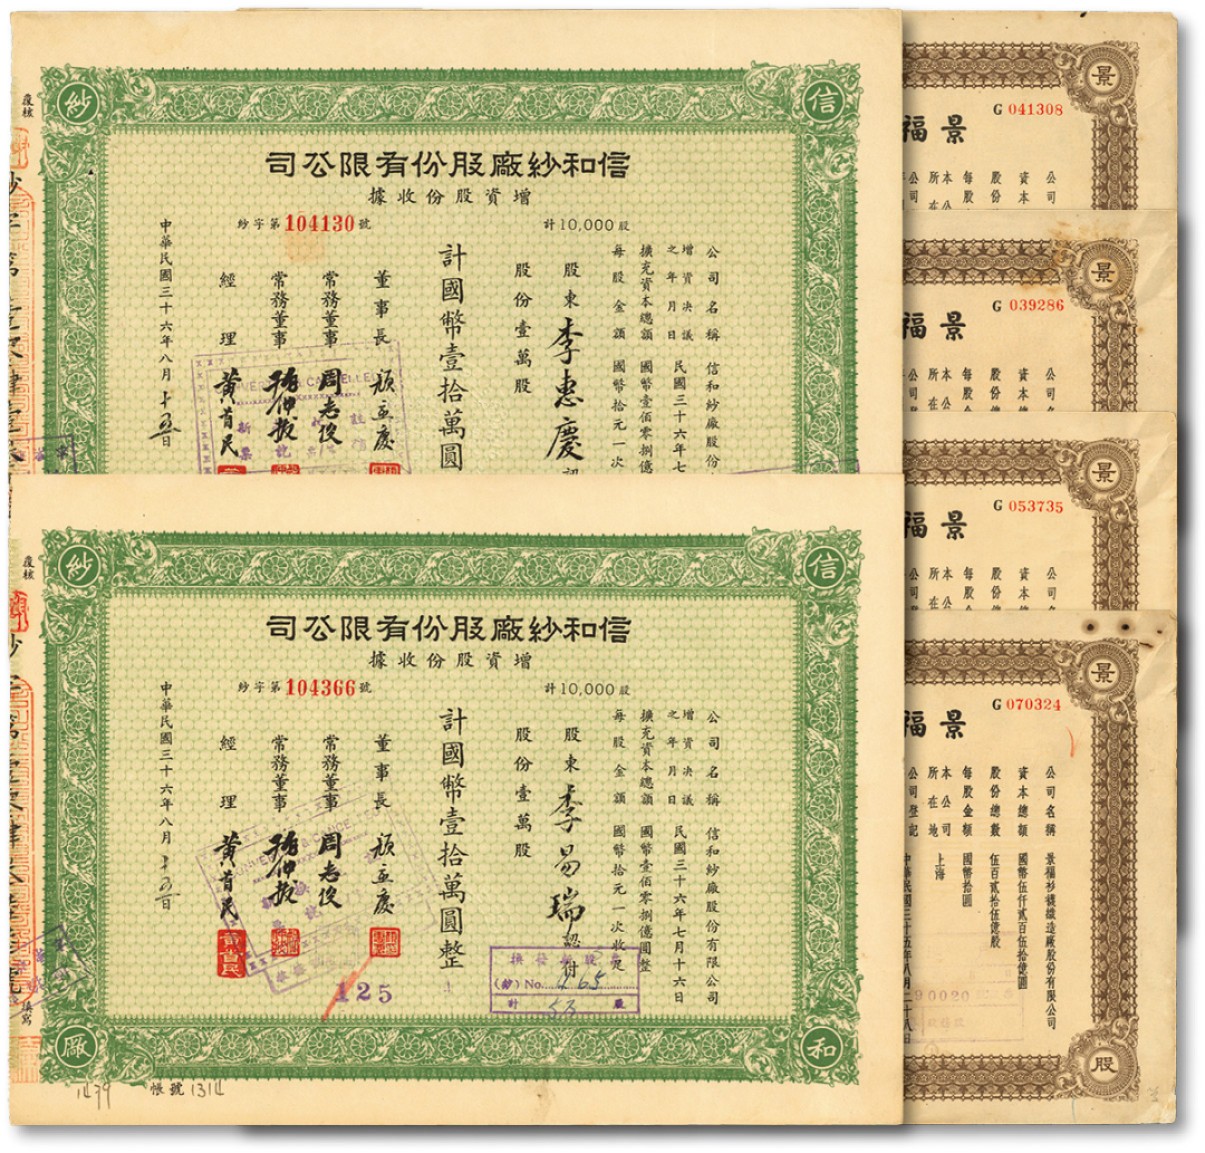 信和紗廠股份有限公司
增資股份收據
紗字第104130號
計10,000股
公司名稱 信和紗廠股份
增資決議之年月日 民國三十六年七
擴充資本總額 國幣壹佰零捌億
每股金額 國幣拾元一次
股東 李惠慶
股份壹萬股
計國幣壹拾萬圓
董事長
常務董事 周志俊
常務董事
經理 黃首民
中華民國三十六年八月十五日
覆核
信
紗
信和紗廠股份有限公司
增資股份收據
紗字第104366號
計10,000股
公司名稱 信和紗廠股份有限公司
增資決議之年月日 民國三十六年七月十六日
擴充資本總額 國幣壹佰零捌億圓整
每股金額 國幣拾元一次收足
股東 李易瑞 認付
股份壹萬股
計國幣壹拾萬圓整
董事長
常務董事 周志俊
常務董事
經理 黃首民
中華民國三十六年八月十五日
黃首民
125
(紗) No. 265
計 53 股
覆核
填寫
信
和
紗
廠
帳號 1314
1479
景
G 041308
景福
公司
資本
股份
每股
本公
所在
景
G 039286
景福
景
G 053735
景福
景
G 070324
景福
公司名稱 景福衫襪織造廠股份有限公司
資本總額 國幣伍仟貳百伍拾億圓
股份總數 伍百貳拾伍億股
每股金額 國幣拾圓
本公司所在地 上海
公司登記 中華民國三十五年八月二十八日
90020
股